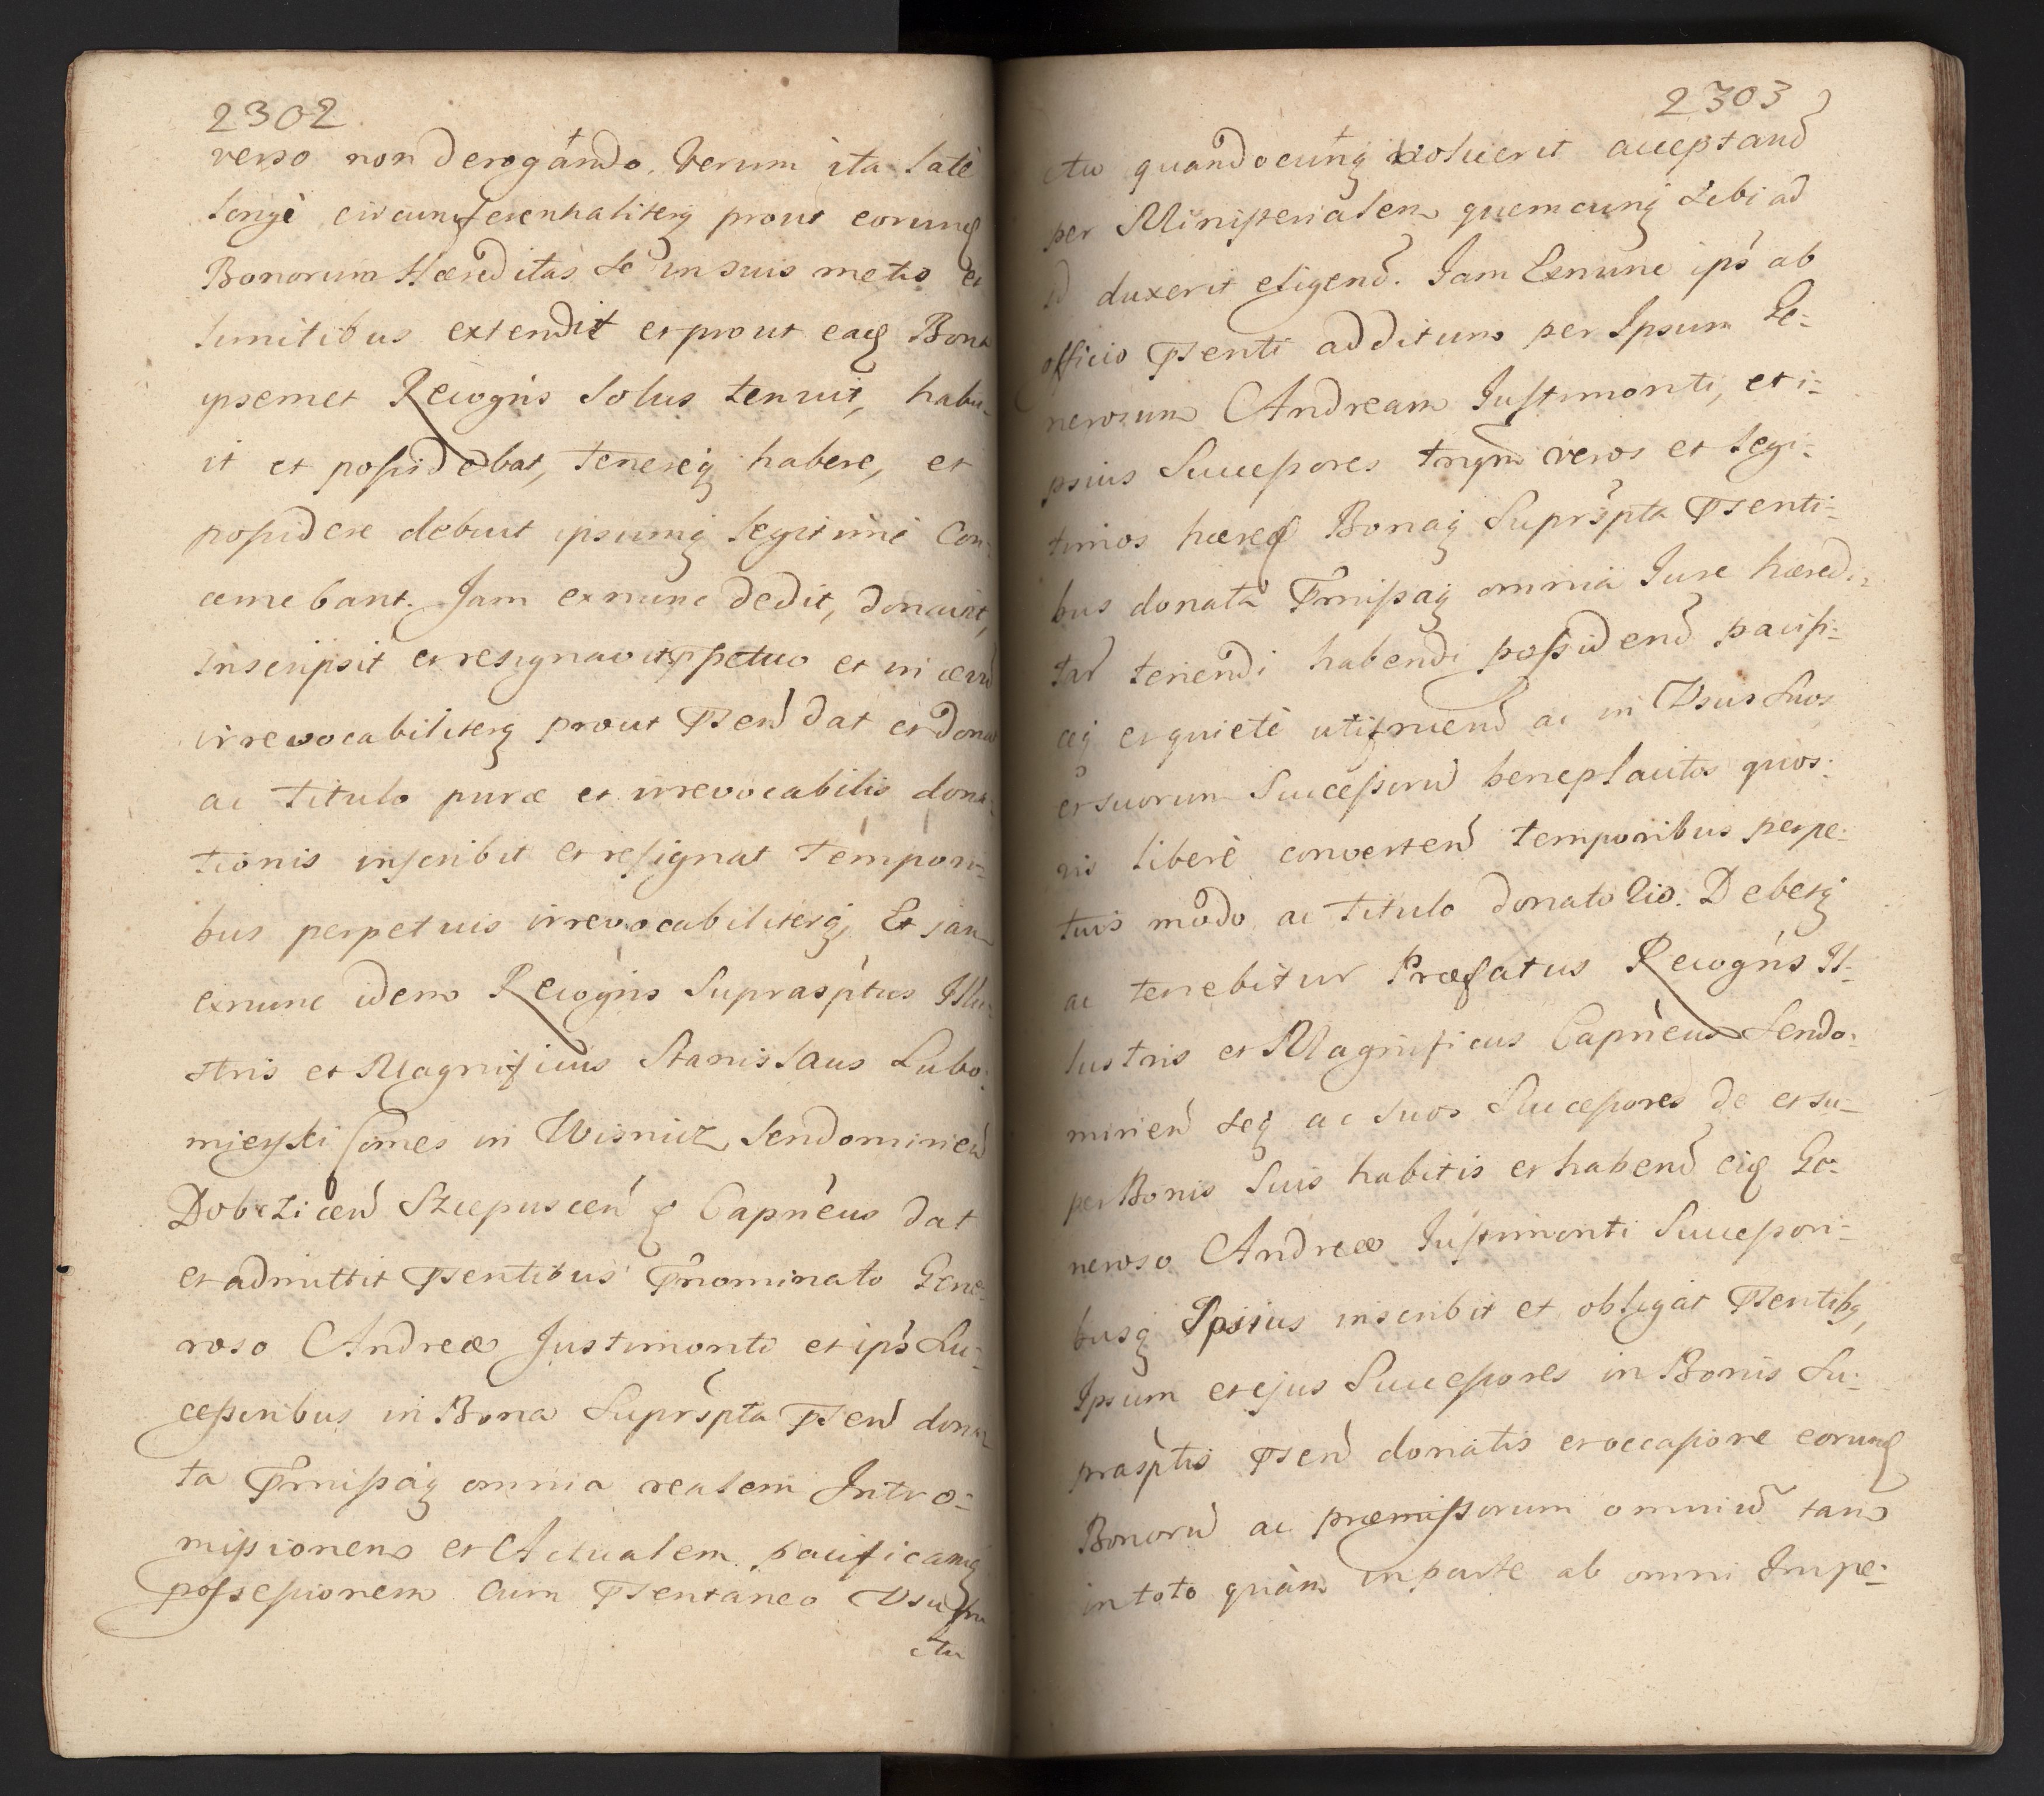 2302
verso non derogándo. Verum ita latè
longè circumferentialiterq prout eorund
Bonorum Hæreditas se in suis metis et
limitibus extendit et prout eaq Bona
ipsemet Recogńs solus tenuit, habu-
it et possidebat, tenereq habere, et
possidere debuit ipsumq legitimè con-
cernebant. Jam exnunc dedit, donavit,
Inscripsit et resignavit ppetuo et in ævū
irrevocabiliterq prout Pseń dat et donat
ac titulo puræ et irrevocabilis dona-
tionis inscribit et resignat tempori-
bus perpetuis irrevocabiliterq, Et jam
exnunc idem Recogńs Supraśptus Illu-
stris et Magnificus Stanislaus Lubo-
mierski Comes in Wisnicz Sendomirień
Dobcziceń Sczepusceń q Capńeus dat
et admittit Psentibus Pnominato Gene-
roso Andreæ Justimonti et ipś Su-
cessoribus in Bona Supŕspta Pseń dona-
ta Pmissaq omnia realem Intro-
missionem et Actualem pacificamq
possessionem cum Psentaneo Usufru
ctu
2303
ctu quandocunq voluerit acceptand
per Ministerialem quemcunq sibi ad
id duxerit eligend. Jam Exnunc ipś ab
officio Psenti additum per Ipsum Ge-
nerosum Andream Justimonti, et i-
psius Successores tnqm veros et legi-
timos hæred Bonaq Supŕspta Psenti-
bus donata Pmissaq omnia Jure hæredi-
tar tenendi habendi possidend pacifi-
ceq et quietè utifruend ac in Usus suos
et suorum Successorū beneplacitos quos-
vis liberè convertend temporibus perpe-
tuis modo ac titulo donatolio. Debetq
ac tenebitur Præfatus Recogńs Il-
lustris et Magnificus Capńeus Sendo-
mirień seq ac suos Successores de et su-
per Bonis suis habitis et habend eid Ge-
neroso Andreæ Justimonti Successori-
busq Ipsius inscribit et obligat Psentibq,
Ipsum et ejus Successores in Bonis Su-
praśptis Pseń donatis et occasione eorund
Bonorū ac præmissorum omniū tam
in toto quàm in parte ab omni Impe-